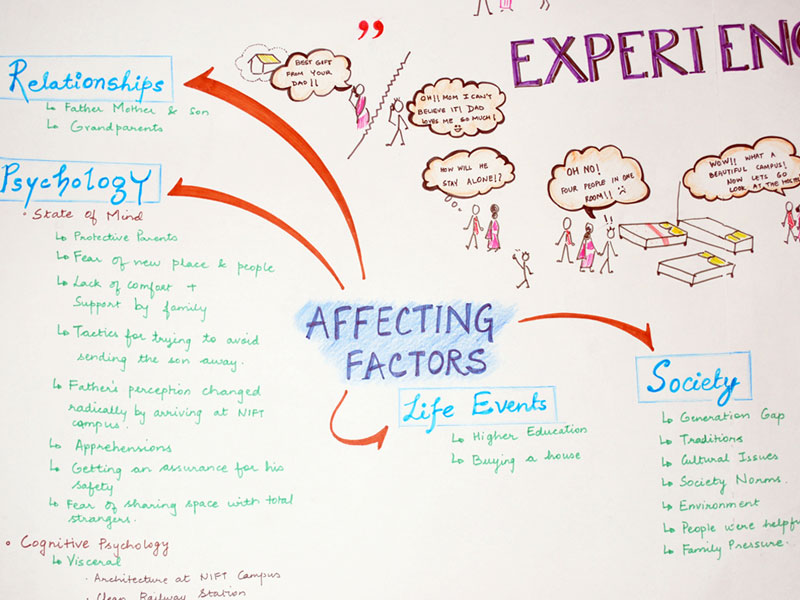 EXPERIENC
”
BEST GIFT
FROM YOUR
DAD!!
OH!! MOM I CAN'T
BELIEVE IT! DAD
LOVES ME SO MUCH!
HOW WILL HE
STAY ALONE!?
OH NO!
FOUR PEOPLE IN ONE
ROOM!!
!!
WOW!! WHAT A
BEAUTIFUL CAMPUS!
NOW LETS GO
LOOK AT THE
Relationships
Father Mother & son
Grandparents
Psychology
State of Mind
Protective Parents
Fear of new place & people
Lack of comfort +
Support by family
Tactics for trying to avoid
sending the son away.
Father's perception changed
radically by arriving at NIFT
campus.
Apprehensions
Getting an assurance for his
safety
Fear of sharing space with total
strangers.
Cognitive Psychology
Visceral
Architecture at NIFT Campus
Clean Railway Station
AFFECTING
FACTORS
Life Events
Higher Education
Buying a house
Society
Generation Gap
Traditions
Cultural Issues
Society Norms.
Environment
People were helpfu
Family Pressure.